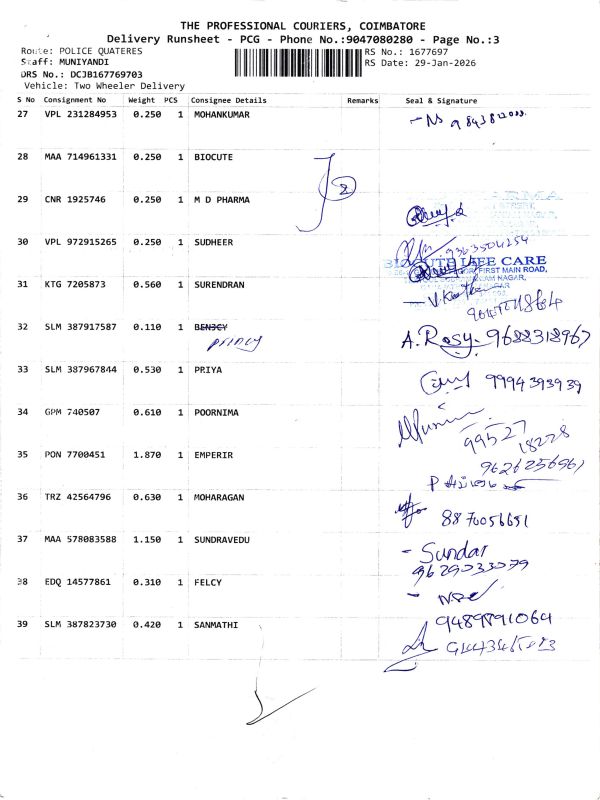 THE PROFESSIONAL COURIERS, COIMBATORE
Delivery Runsheet - PCG - Phone No.:9047080280 - Page No.:3
Route: POLICE QUATERES
RS No.: 1677697
Staff: MUNIYANDI
RS Date: 29-Jan-2026
DRS No.: DCJB167769703
Vehicle: Two Wheeler Delivery
S No Consignment No Weight PCS Consignee Details Remarks Seal & Signature
27 VPL 231284953 0.250 1 MOHANKUMAR
28 MAA 714961331 0.250 1 BIOCUTE
2
29 CNR 1925746 0.250 1 M D PHARMA
30 VPL 972915265 0.250 1 SUDHEER
9363504254
LIFE CARE
FIRST MAIN ROAD,
31 KTG 7205873 0.560 1 SURENDRAN
32 SLM 387917587 0.110 1 BENJCY A. Rosy. 9688318967
33 SLM 387967844 0.530 1 PRIYA 9994393939
34 GPM 740507 0.610 1 POORNIMA
99527
18228
35 PON 7700451 1.870 1 EMPERIR
9626256961
36 TRZ 42564796 0.630 1 MOHARAGAN
8870056651
37 MAA 578083588 1.150 1 SUNDRAVEDU - Sundar
9629033079
38 EDQ 14577861 0.310 1 FELCY
39 SLM 387823730 0.420 1 SANMATHI 9489891064